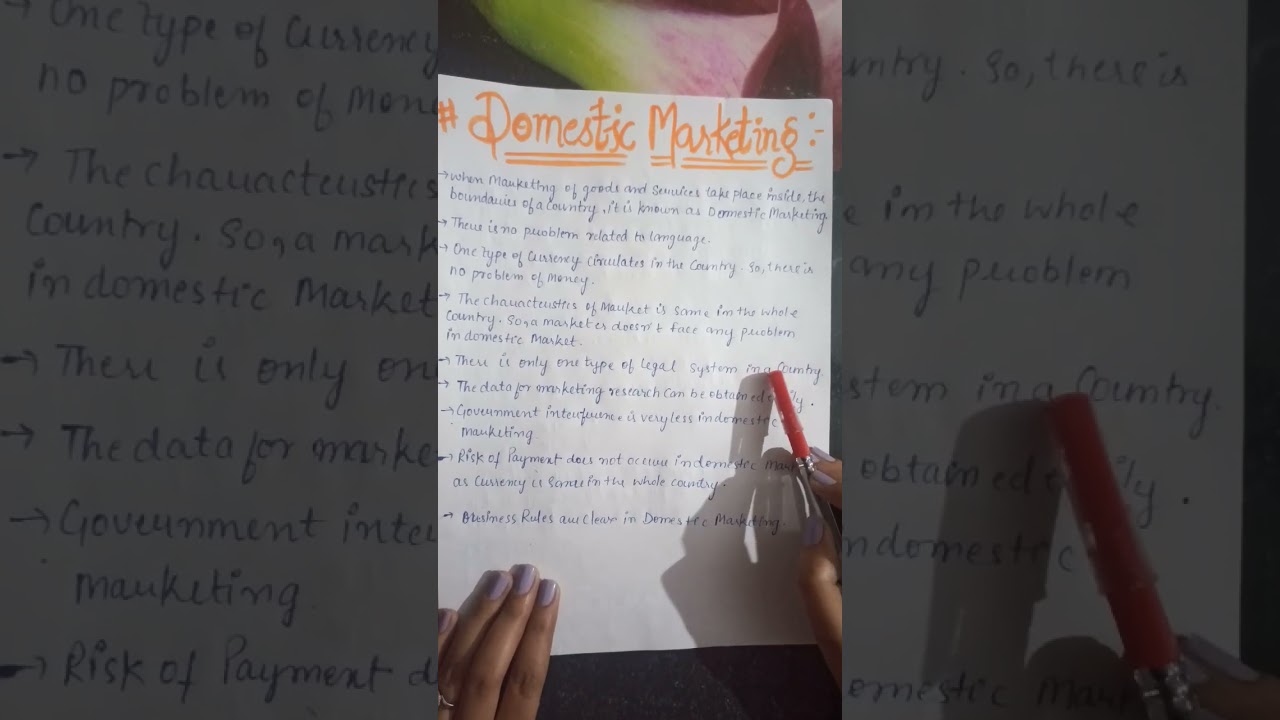 # Domestic Marketing :-
→ when Marketing of goods and services take place inside the
boundaries of a country, it is known as Domestic Marketing
→ There is no problem related to language.
→ One type of Currency circulates in the Country. So, there is
no problem of Money.
→ The characteristics of Market is same in the whole
Country. So, a marketer doesn't face any problem
in domestic Market.
→ There is only one type of Legal System in a Country.
→ The data for marketing research can be obtained
→ Government interference is very less in domestic
marketing
→ Risk of Payment does not occur in domestic
as Currency is same in the whole country.
→ Business Rules are Clear in Domestic Marketing.